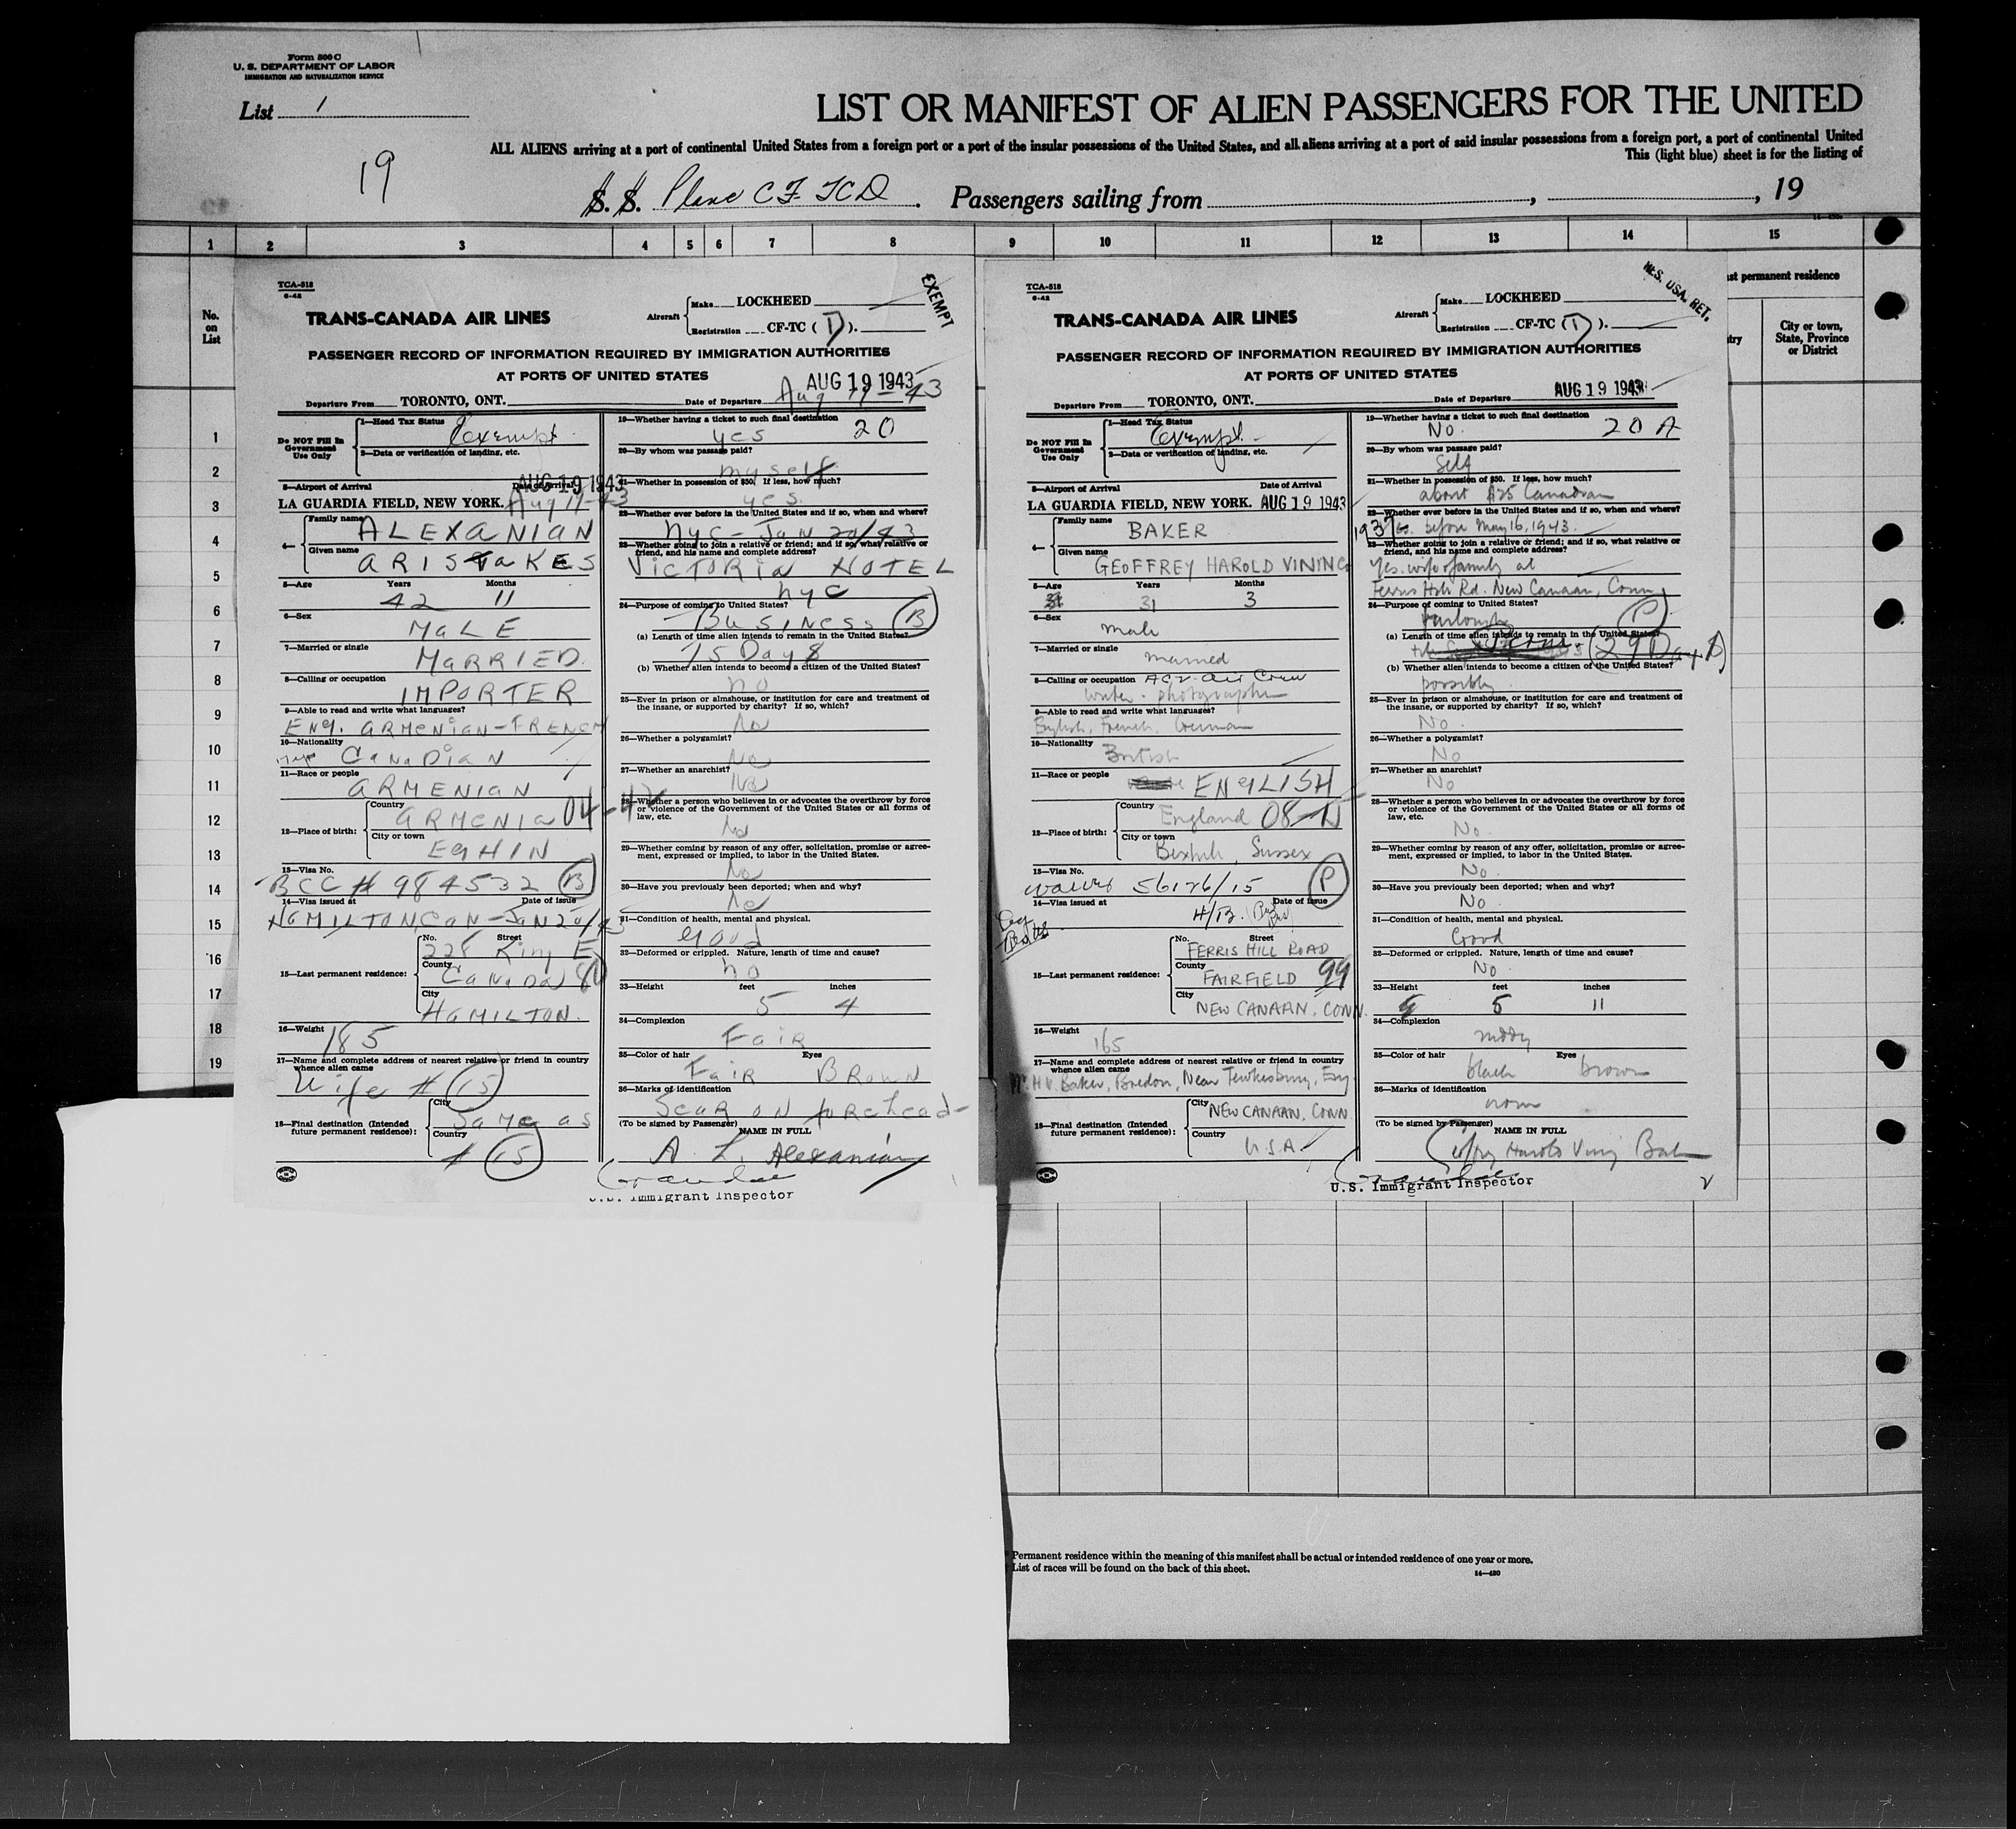 Form 500 C
U. S. DEPARTMENT OF LABOR
IMMIGRATION AND NATURALIZATION SERVICE
List 1
LIST OR MANIFEST OF ALIEN PASSENGERS FOR THE UNITED
ALL ALIENS arriving at a port of continental United States from a foreign port or a port of the insular possessions of the United States, and all aliens arriving at a port of said insular possessions from a foreign port, a port of continental United
This (light blue) sheet is for the listing of
19
S. S. Plane CF-TCD. Passengers sailing from , , 19
1 2 3 4 5 6 7 8 9 10 11 12 13 14 15
No. on List
st permanent residence
try
City or town, State, Province or District
1
2
3
4
5
6
7
8
9
10
11
12
13
14
15
16
17
18
19
TCA-518
6-42
EXEMPT
TRANS-CANADA AIR LINES
Aircraft Make LOCKHEED
Registration CF-TC (D).
PASSENGER RECORD OF INFORMATION REQUIRED BY IMMIGRATION AUTHORITIES
AT PORTS OF UNITED STATES
AUG 19 1943
Departure From TORONTO, ONT. Date of Departure Aug 19-43
Do NOT Fill In Government Use Only
1—Head Tax Status Exempt
2—Data or verification of landing, etc.
3—Airport of Arrival Date of Arrival AUG 19 1943
LA GUARDIA FIELD, NEW YORK. Aug 19-43
4— Family name ALEXANIAN
Given name ARISTAKES
5—Age Years 42 Months 11
6—Sex MALE
7—Married or single MARRIED
8—Calling or occupation IMPORTER
9—Able to read and write what languages?
ENG. ARMENIAN-FRENCH
10—Nationality CANADIAN
11—Race or people ARMENIAN
12—Place of birth: Country ARMENIA 04-42
City or town EGHIN
13—Visa No.
BCC # 984532 (B)
14—Visa issued at Date of issue
HAMILTON, CAN-JAN 20/43
15—Last permanent residence: No. Street 228 King E
County CANADA
City HAMILTON.
16—Weight 185
17—Name and complete address of nearest relative or friend in country whence alien came
Wife # (15)
18—Final destination (Intended future permanent residence): City Same as
Country # (15)
19—Whether having a ticket to such final destination
yes 20
20—By whom was passage paid?
myself
21—Whether in possession of $50. If less, how much?
yes.
22—Whether ever before in the United States and if so, when and where?
NYC-JAN 20/43
23—Whether going to join a relative or friend; and if so, what relative or friend, and his name and complete address?
VICTORIA HOTEL
NYC
24—Purpose of coming to United States?
BUSINESS (B)
(a) Length of time alien intends to remain in the United States?
15 Days
(b) Whether alien intends to become a citizen of the United States?
no
25—Ever in prison or almshouse, or institution for care and treatment of the insane, or supported by charity? If so, which?
No
26—Whether a polygamist?
No
27—Whether an anarchist?
No
28—Whether a person who believes in or advocates the overthrow by force or violence of the Government of the United States or all forms of law, etc.
No
29—Whether coming by reason of any offer, solicitation, promise or agreement, expressed or implied, to labor in the United States.
No
30—Have you previously been deported; when and why?
No
31—Condition of health, mental and physical.
good
32—Deformed or crippled. Nature, length of time and cause?
no
33—Height feet 5 inches 4
34—Complexion
FAIR
35—Color of hair Eyes
FAIR BROWN
36—Marks of identification
Scar on forehead-
(To be signed by Passenger) NAME IN FULL
A. L. Alexanian
U.S. Immigrant Inspector
TCA-518
6-42
RES. USA. RET.
TRANS-CANADA AIR LINES
Aircraft Make LOCKHEED
Registration CF-TC (D).
PASSENGER RECORD OF INFORMATION REQUIRED BY IMMIGRATION AUTHORITIES
AT PORTS OF UNITED STATES
AUG 19 1943
Departure From TORONTO, ONT. Date of Departure
Do NOT Fill In Government Use Only
1—Head Tax Status Exempt.
2—Data or verification of landing, etc.
3—Airport of Arrival Date of Arrival
LA GUARDIA FIELD, NEW YORK. AUG 19 1943
4— Family name BAKER
Given name GEOFFREY HAROLD VINING
5—Age Years 31 Months 3
6—Sex male
7—Married or single married
8—Calling or occupation Air Crew
Writer-photographer
9—Able to read and write what languages?
English, French, German
10—Nationality British
11—Race or people ENGLISH
12—Place of birth: Country England 08-
City or town Bexhill, Sussex
13—Visa No.
waiver 56126/15 (P)
14—Visa issued at Date of issue
15—Last permanent residence: No. Street FERRIS HILL ROAD
County FAIRFIELD 99
City NEW CANAAN, CONN.
16—Weight 165
17—Name and complete address of nearest relative or friend in country whence alien came
Mr. H.V. Baker, Bredon, Near Tewkesbury, Eng
18—Final destination (Intended future permanent residence): City NEW CANAAN, CONN
Country U.S.A.
19—Whether having a ticket to such final destination
No. 20 A
20—By whom was passage paid?
Self
21—Whether in possession of $50. If less, how much?
about $25 Canadian
22—Whether ever before in the United States and if so, when and where?
1937 before May 16, 1943.
23—Whether going to join a relative or friend; and if so, what relative or friend, and his name and complete address?
Yes. wife & family at
Ferris Hill Rd. New Canaan, Conn
24—Purpose of coming to United States?
furlough (P)
(a) Length of time alien intends to remain in the United States?
Perm. (29 Days)
(b) Whether alien intends to become a citizen of the United States?
possibly
25—Ever in prison or almshouse, or institution for care and treatment of the insane, or supported by charity? If so, which?
No.
26—Whether a polygamist?
No
27—Whether an anarchist?
No
28—Whether a person who believes in or advocates the overthrow by force or violence of the Government of the United States or all forms of law, etc.
No.
29—Whether coming by reason of any offer, solicitation, promise or agreement, expressed or implied, to labor in the United States.
No.
30—Have you previously been deported; when and why?
No.
31—Condition of health, mental and physical.
Good
32—Deformed or crippled. Nature, length of time and cause?
No.
33—Height feet 5 inches 11
34—Complexion
ruddy
35—Color of hair Eyes
black brown
36—Marks of identification
none
(To be signed by Passenger) NAME IN FULL
Geoffrey Harold Vining Baker
U.S. Immigrant Inspector
2
Permanent residence within the meaning of this manifest shall be actual or intended residence of one year or more.
List of races will be found on the back of this sheet.
14—430